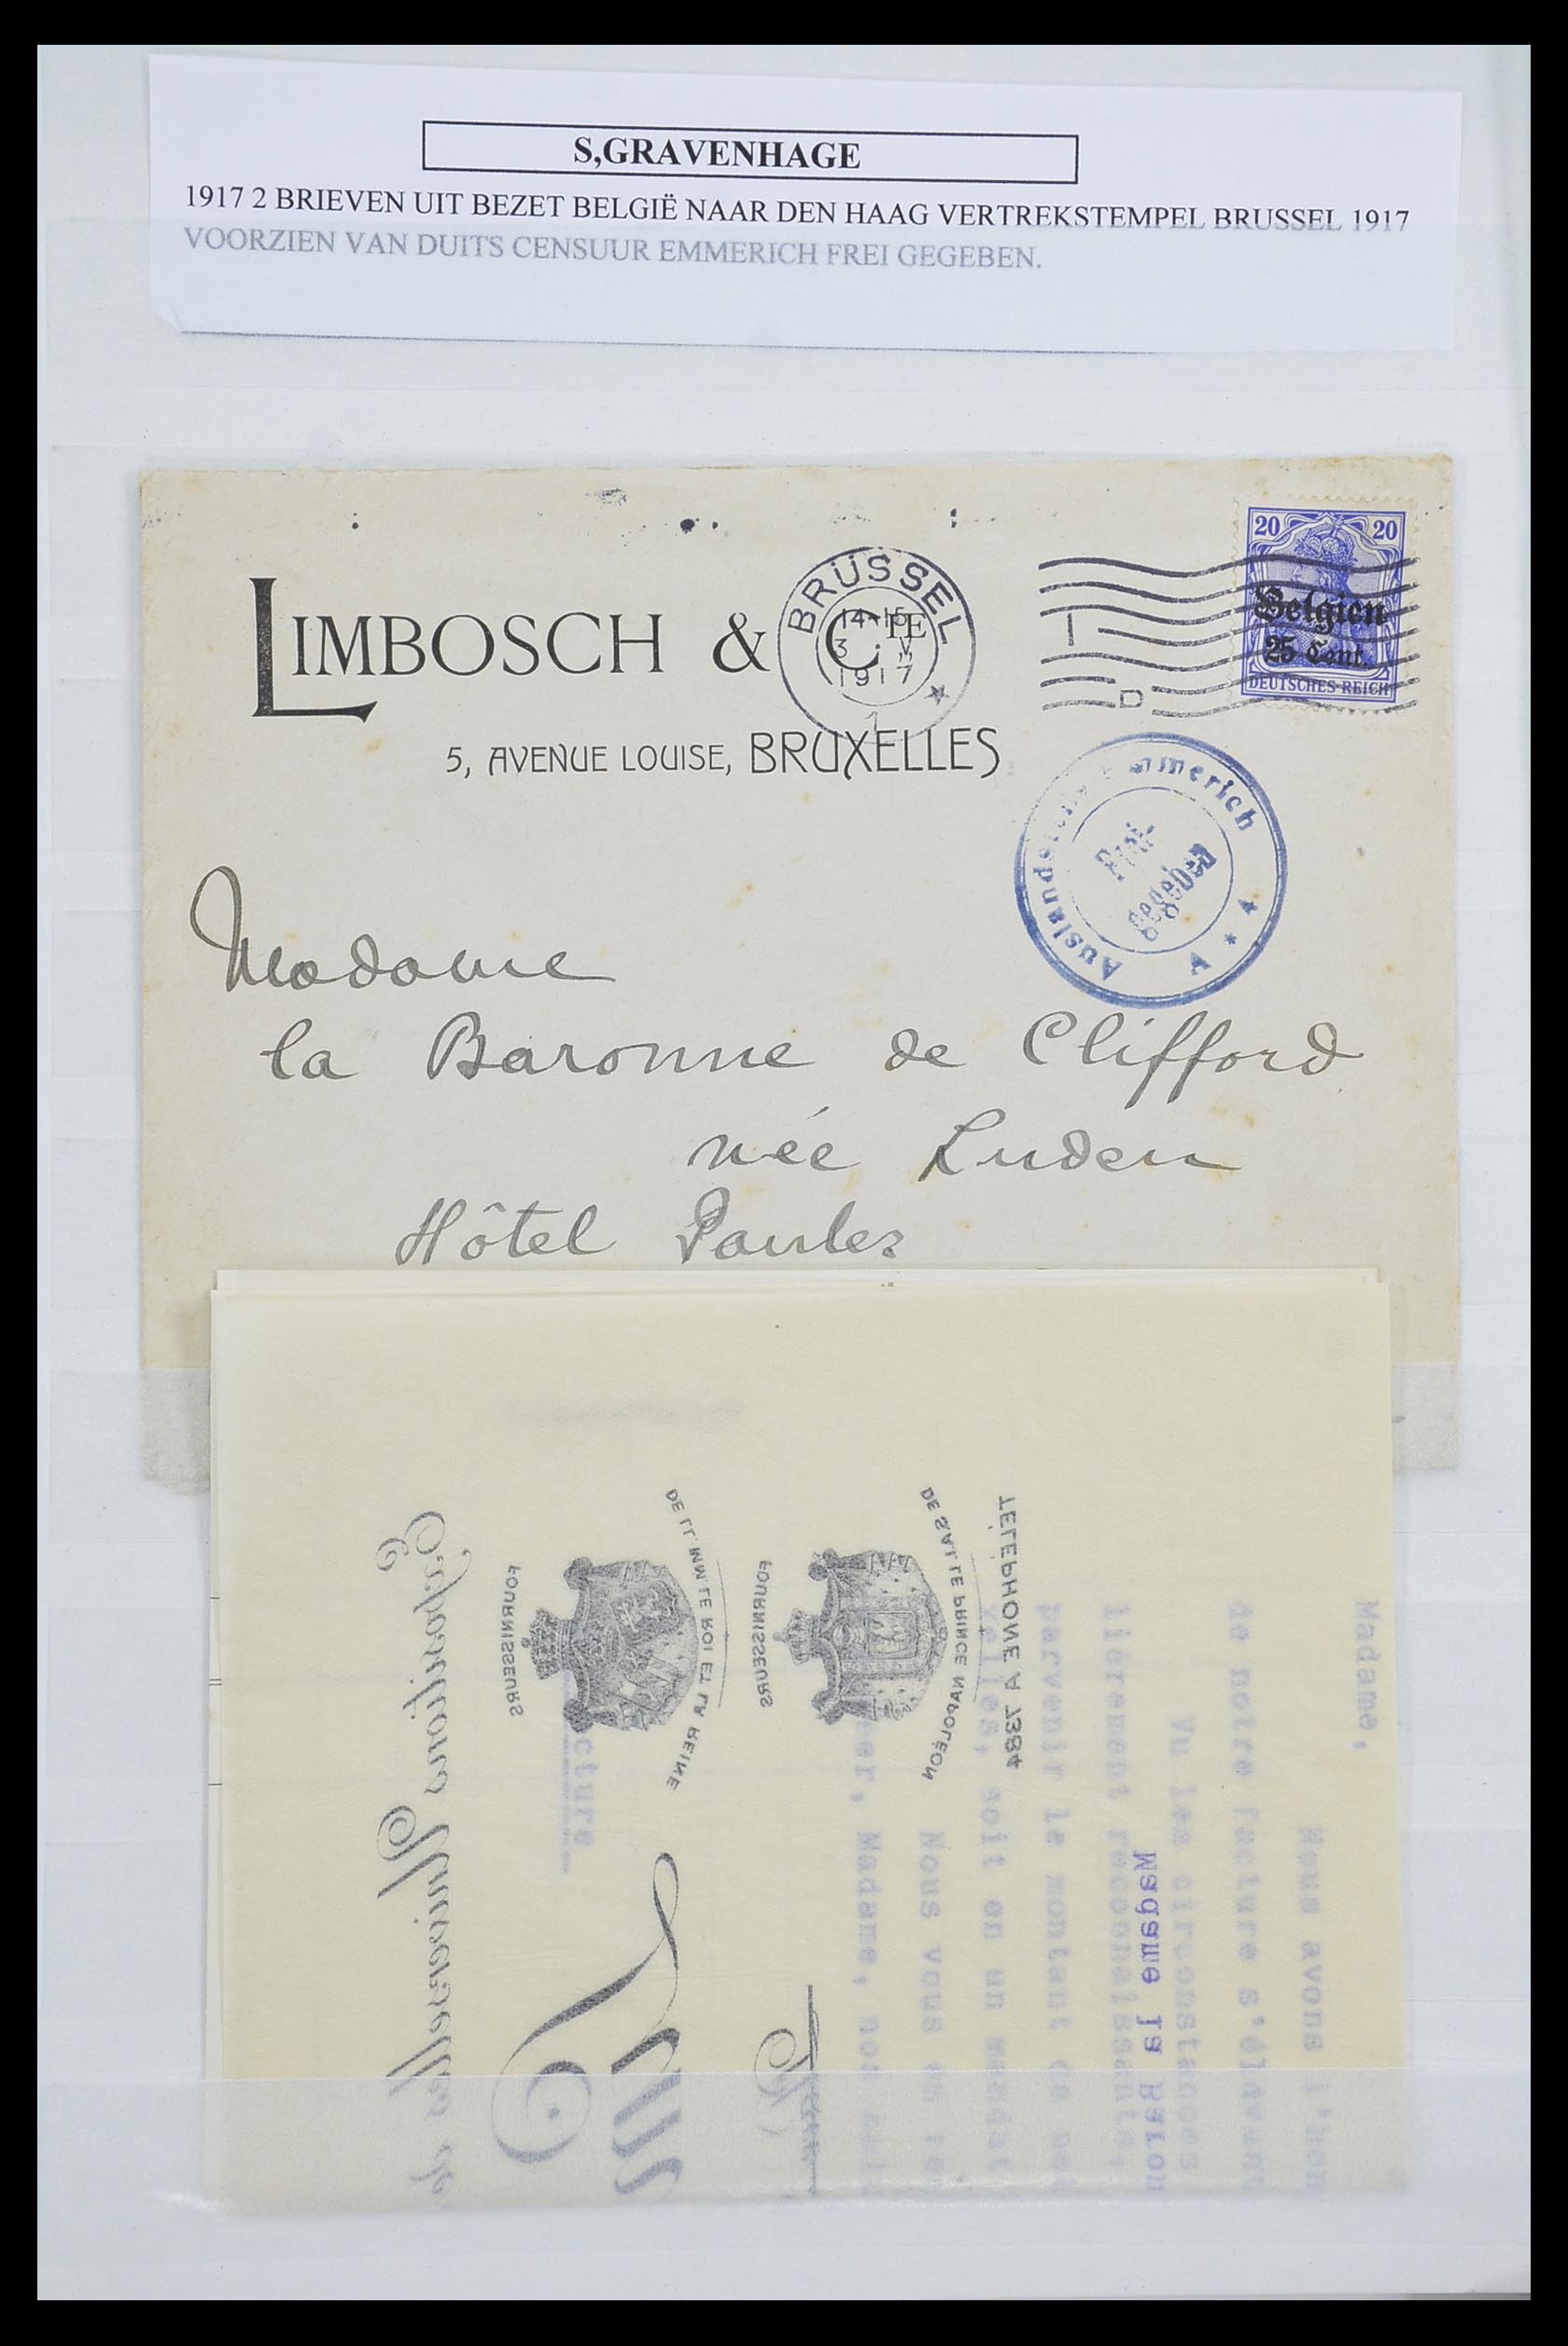 S,GRAVENHAGE
1917 2 BRIEVEN UIT BEZET BELGIË NAAR DEN HAAG VERTREKSTEMPEL BRUSSEL 1917
VOORZIEN VAN DUITS CENSUUR EMMERICH FREI GEGEBEN.
20 20
Belgien
25 Cent.
DEUTSCHES REICH
LIMBOSCH & CIE
BRÜSSEL
14-15
3 V
1917
5, AVENUE LOUISE, BRUXELLES
Auslandsstelle Emmerich
Frei-
gegeben
Madame
la Baronne de Clifford
née Luden
Hôtel Paulez
FOURNISSEURS
DE LL.MM. LE ROI ET LA REINE
FOURNISSEURS
DE S.A.I. LE PRINCE NAPOLÉON
TÉLÉPHONE A 7384
Madame,
Nous avons l'hon
de notre facture s'élevant
Vu les circonstances
Madame la Baron
lièrement reconnaissants,
parvenir le montant de not
soit en un mandat
Nous vous en re
Madame, nos